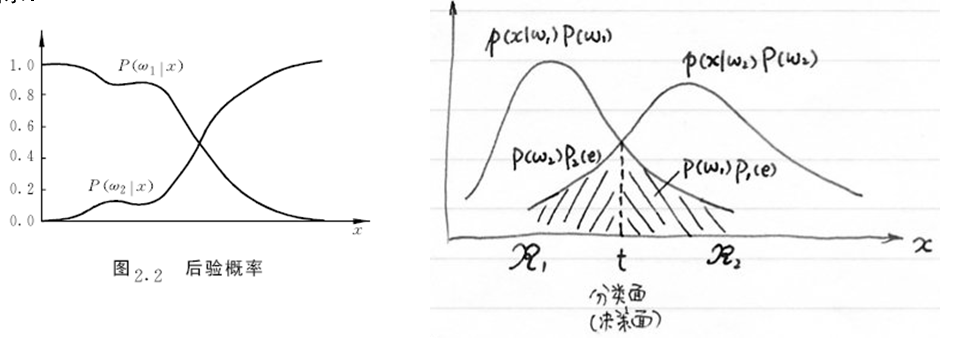 1.0
0.8
0.6
0.4
0.2
0.0
P(ω₁|x)
P(ω₂|x)
x
图2.2 后验概率
p(x|ω₁)P(ω₁)
p(x|ω₂)P(ω₂)
P(ω₂)P₂(e)
P(ω₁)P₁(e)
ℛ₁
t
ℛ₂
x
分类面
(决策面)